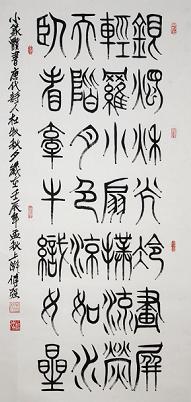 銀燭秌光冷畫屏
輕羅小扇撲流螢
天階月色涼如水
臥看牽牛織女星
小篆體書唐代詩人杜牧秋夕歲在壬辰年孟秋上澣